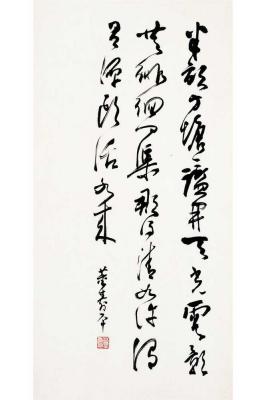 半亩方塘鉴开天光云影
共徘徊问渠那得清如许为
有源头活水来
董寿平